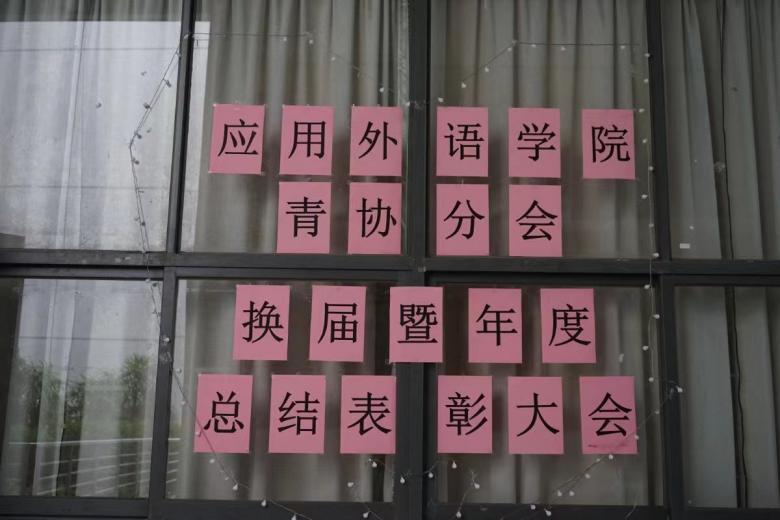 应用外语学院
青协分会
换届暨年度
总结表彰大会